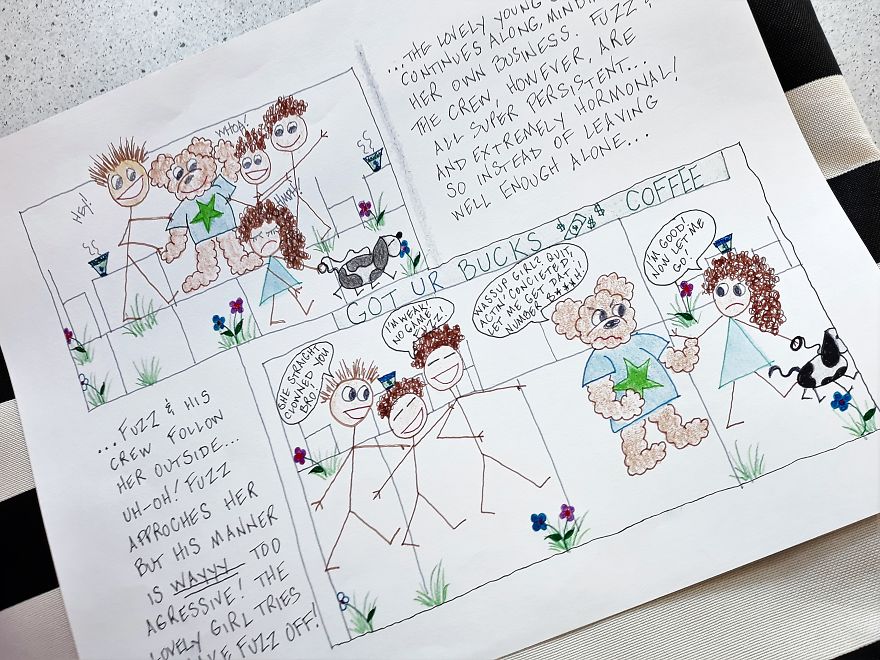 HEY!
WHOA!
...THE LOVELY YOUNG
CONTINUES ALONG, MINDI
HER OWN BUSINESS. FUZZ &
THE CREW, HOWEVER, ARE
ALL SUPER PERSISTENT...
AND EXTREMELY HORMONAL!
SO INSTEAD OF LEAVING
WELL ENOUGH ALONE...
...FUZZ & HIS
CREW FOLLOW
HER OUTSIDE...
UH-OH! FUZZ
APPROCHES HER
BUT HIS MANNER
IS WAYYY TOO
AGRESSIVE! THE
LOVELY GIRL TRIES
FUZZ OFF!
GOT UR BUCKS $ $ $ COFFEE
SHE STRAIGHT
CLOWNED YOU
BRO!
I'M WEAK!
NO GAME
FUZZ!
WASSUP GIRL? QUIT
ACTN' CONCIETED,
LET ME GET DAT
NUMBER B****!
I'M GOOD!
NOW LET ME
GO!